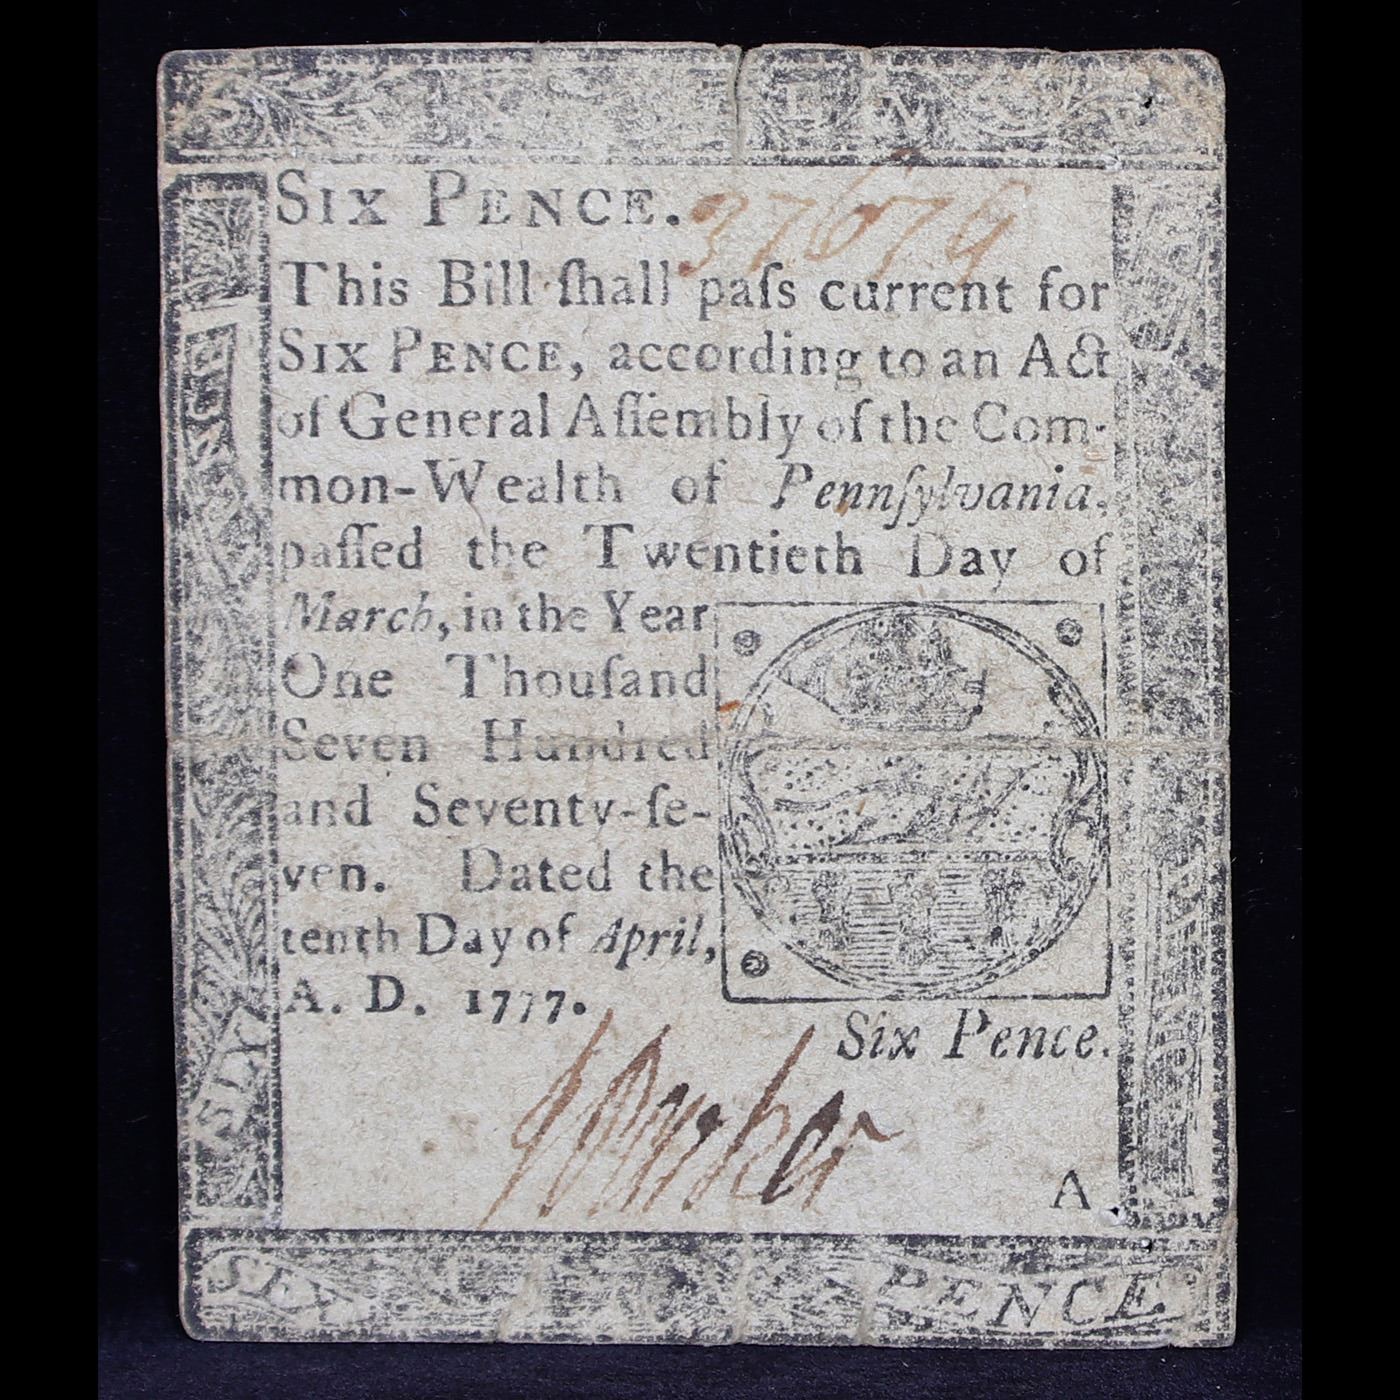 SIX PENCE. 37679
This Bill ſhall paſs current for
SIX PENCE, according to an Act
of General Aſſembly of the Com-
mon-Wealth of Pennſylvania,
paſſed the Twentieth Day of
March, in the Year
One Thouſand
Seven Hundred
and Seventy-ſe-
ven. Dated the
tenth Day of April,
A. D. 1777.
Six Pence.
A
SIX PENCE